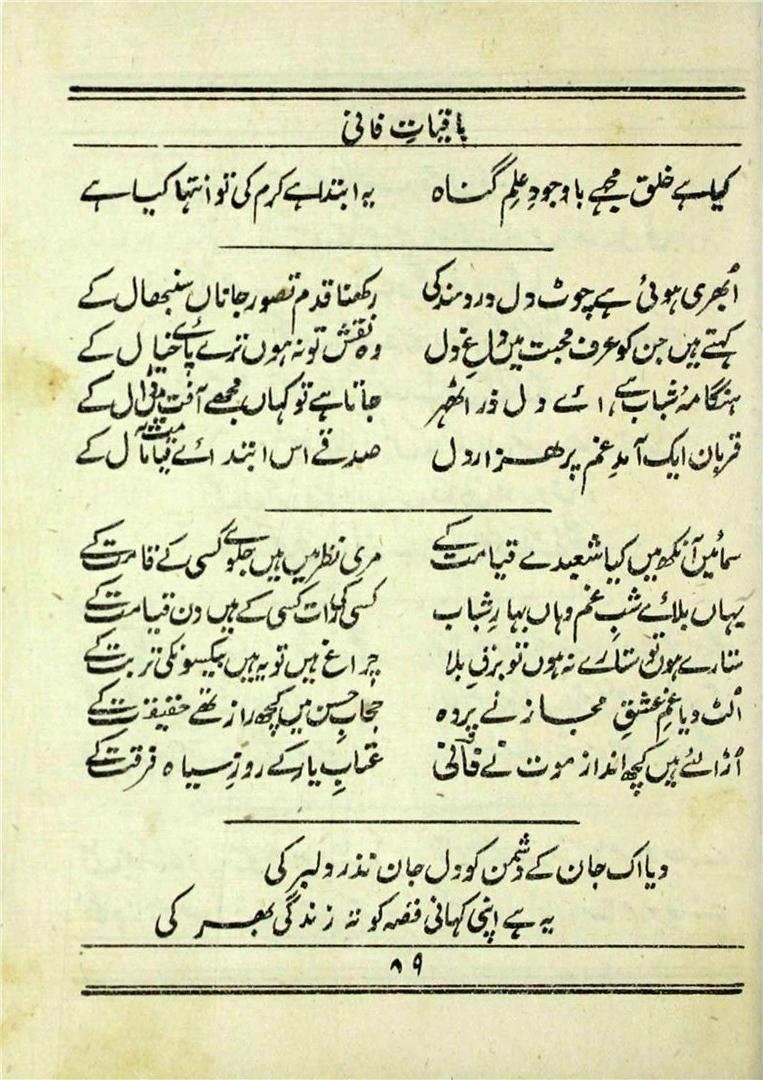 باقیاتِ فانی
کیا ہے خلق مجھے باوجودِ علمِ گناہ یہ ابتدا ہے کرم کی تو انتہا کیا ہے
اُبھری ہوئی ہے چوٹ دل دردمند کی رکھنا قدم تصورِ جاناں سنبھال کے
کہتے ہیں جن کو عرف محبت میں داغِ دل وہ نقش تو نہ ہوں ترے پائے خیال کے
ہنگامۂ شباب ہے، اے دل ذرا ٹھہر جاتا ہے تو کہاں مجھے آفت میں ڈال کے
قربان ایک آمدِ غم پر ہزار دل صدقے اس ابتدائے قیامت مآل کے
سمائیں آنکھ میں کیا شعبدے قیامت کے مری نظر میں ہیں جلوے کسی کے قامت کے
یہاں بلائے شبِ غم وہاں بہارِ شباب کسی کی رات کسی کے ہیں دن قیامت کے
ستارے ہوں تو ستارے نہ ہوں تو برقِ بلا چراغ ہیں تو یہ ہیں بیکسوں کی تربت کے
الٹ دیا غمِ عشقِ مجاز نے پردہ حجابِ حسن میں کچھ راز تھے حقیقت کے
اُڑا لئے ہیں کچھ انداز موت نے فانی عتابِ یار کے روزِ سیاہ فرقت کے
دیا اک جان کے دشمن کو دل جان نذر دلبر کی
یہ ہے اپنی کہانی قصہ کوتہ زندگی بھر کی
۸۹